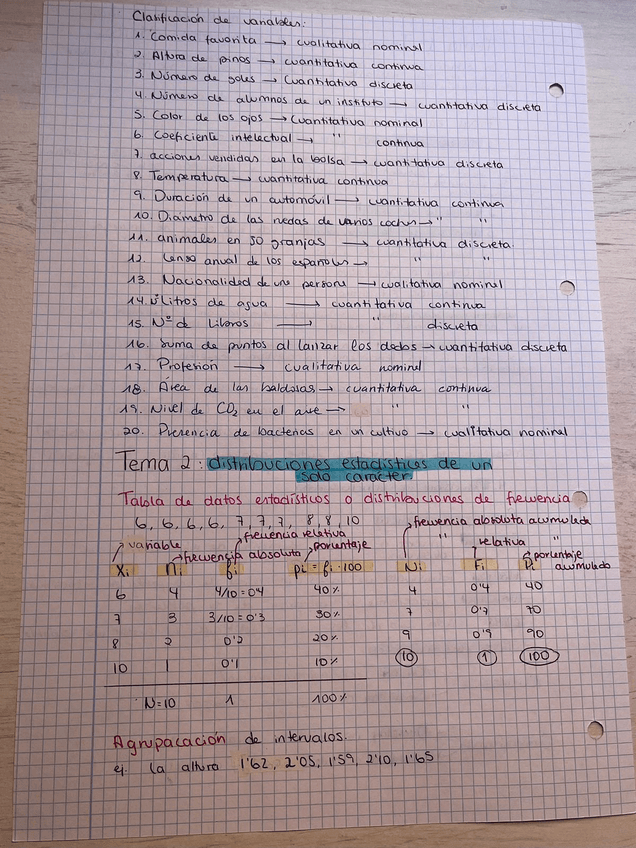 Clasificación de variables:
1. Comida favorita → cualitativa nominal
2. Altura de pinos → cuantitativa continua
3. Número de goles → cuantitativa discreta
4. Número de alumnos de un instituto → cuantitativa discreta
5. Color de los ojos → cuantitativa nominal
6. Coeficiente intelectual → " continua
7. acciones vendidas en la bolsa → cuantitativa discreta
8. Temperatura → cuantitativa continua
9. Duración de un automóvil → cuantitativa continua
10. Diámetro de las ruedas de varios coches → " "
11. animales en 50 granjas → cuantitativa discreta
12. Censo anual de los españoles → " "
13. Nacionalidad de una persona → cualitativa nominal
14. litros de agua → cuantitativa continua
15. Nº de Libros → " discreta
16. suma de puntos al lanzar los dados → cuantitativa discreta
17. Profesión → cualitativa nominal
18. Área de las baldosas → cuantitativa continua
19. Nivel de CO2 en el aire → " "
20. Presencia de bacterias en un cultivo → cualitativa nominal
Tema 2: distribuciones estadísticas de un
solo carácter
Tabla de datos estadísticos o distribuciones de frecuencia
6, 6, 6, 6, 7, 7, 7, 8, 8, 10 frecuencia absoluta acumulada
variable frecuencia relativa " relativa "
frecuencia absoluta porcentaje porcentaje acumulado
xi ni fi pi = fi · 100 Ni Fi Pi
6 4 4/10 = 0'4 40% 4 0'4 40
7 3 3/10 = 0'3 30% 7 0'7 70
8 2 0'2 20% 9 0'9 90
10 1 0'1 10% 10 1 100
N=10 1 100%
Agrupacación de intervalos.
ej. la altura 1'62, 2'05, 1'59, 2'10, 1'65